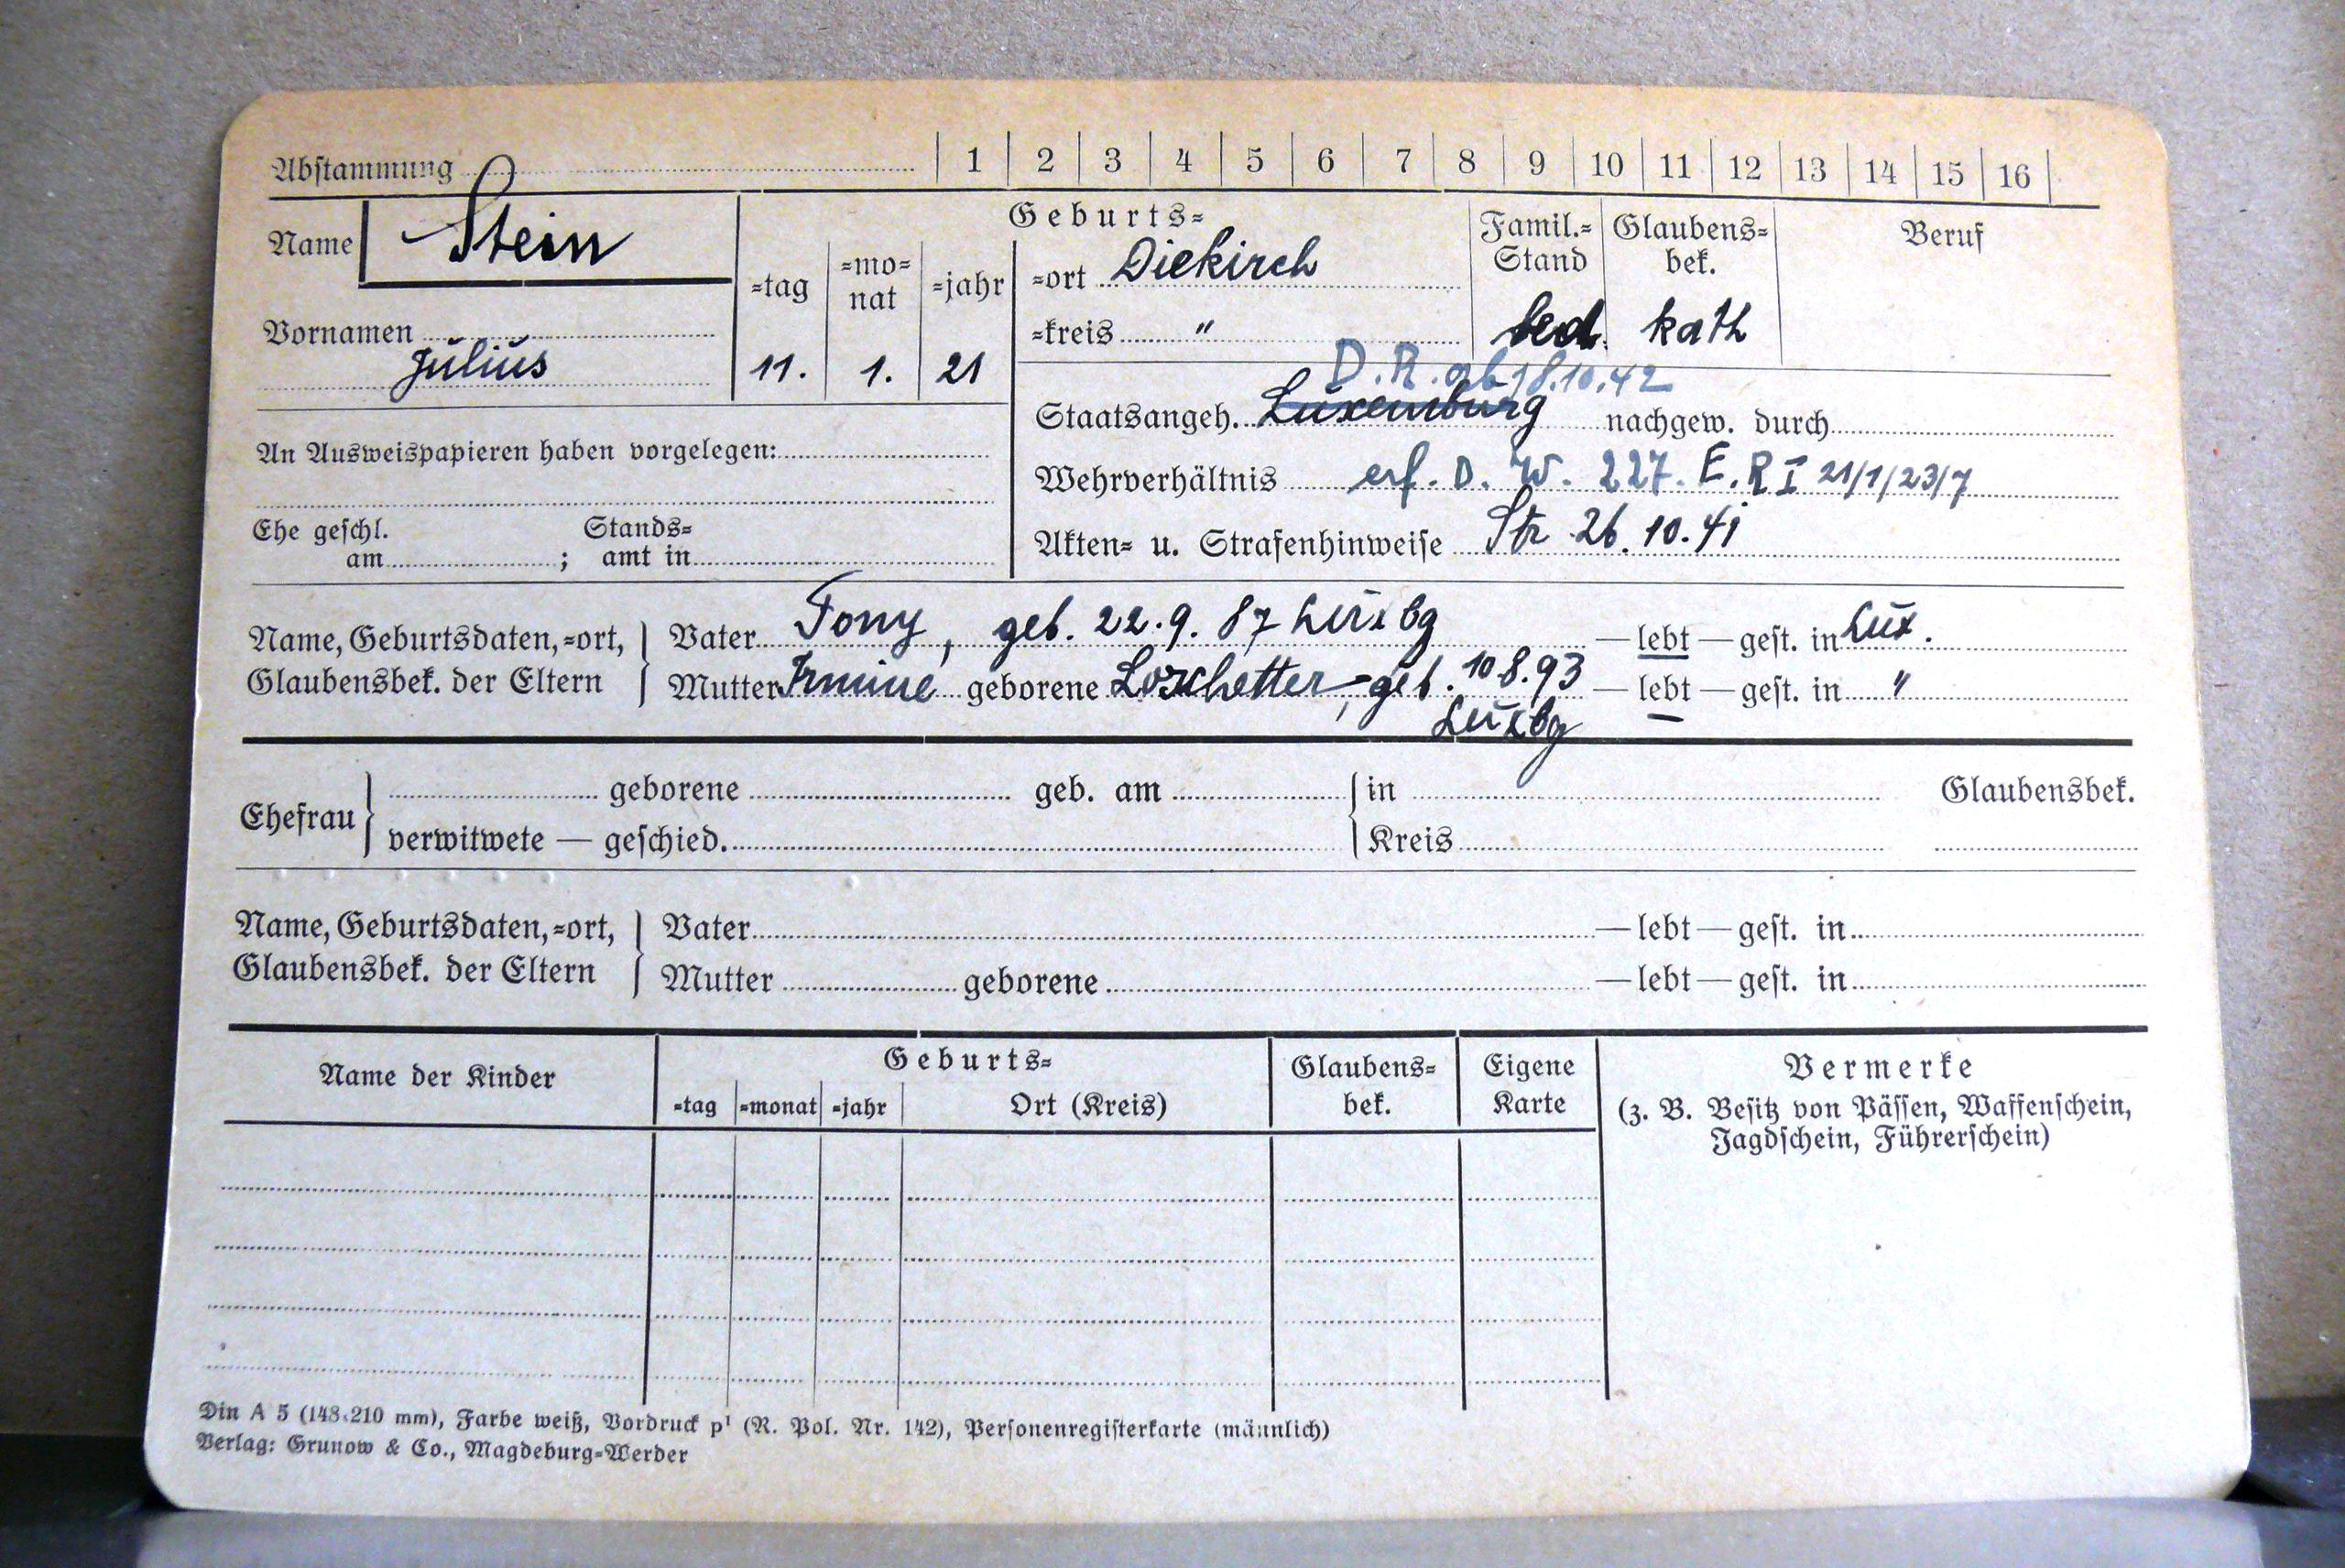 Abstammung 1 2 3 4 5 6 7 8 9 10 11 12 13 14 15 16
Name Stein
Vornamen
Julius
Geburts=
=tag =mo=nat =jahr
11. 1. 21
=ort Diekirch
=kreis "
Famil.=Stand
led.
Glaubens=bek.
kath
Beruf
D.R. ab 18.10.42
Staatsangeh. Luxemburg nachgew. durch
An Ausweispapieren haben vorgelegen:
Wehrverhältnis erf. D. W. 227. E. R I 21/1/23/7
Ehe geschl. am ; Stands=amt in
Akten= u. Strafenhinweise Str 26.10.41
Name, Geburtsdaten, =ort,
Glaubensbek. der Eltern
Vater Tony, geb. 22.9.87 Luxbg — lebt — gest. in Lux.
Mutter Irmine geborene Loschetter, geb. 10.8.93 — lebt — gest. in "
Luxbg
Ehefrau geborene geb. am in Glaubensbek.
verwitwete — geschied. Kreis
Name, Geburtsdaten, =ort,
Glaubensbek. der Eltern
Vater — lebt — gest. in
Mutter geborene — lebt — gest. in
Name der Kinder
Geburts=
=tag =monat =jahr Ort (Kreis)
Glaubens=bek.
Eigene Karte
Vermerke
(z. B. Besitz von Pässen, Waffenschein,
Jagdschein, Führerschein)
Din A 5 (148×210 mm), Farbe weiß, Vordruck p¹ (R. Pol. Nr. 142), Personenregisterkarte (männlich)
Verlag: Grunow & Co., Magdeburg=Werder